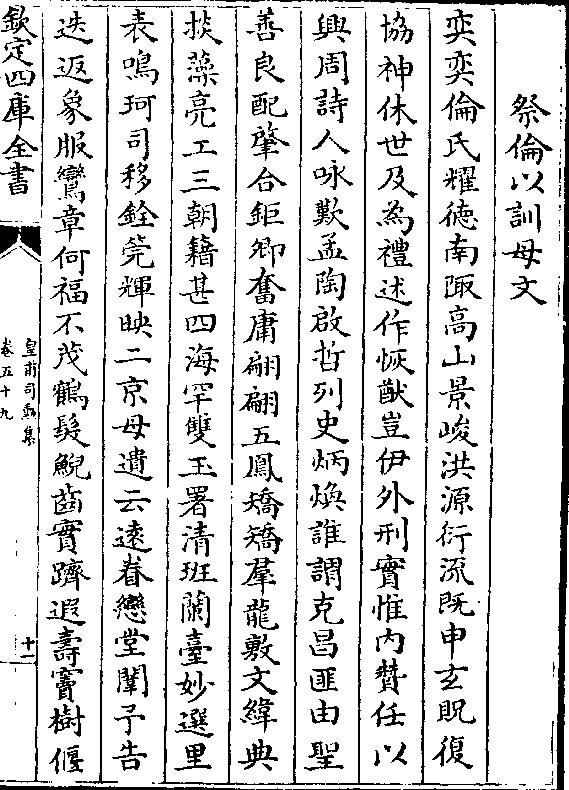 祭倫以訓母文
奕奕倫氏耀徳南陬高山景峻洪源衍流既申玄貺復
協神休世及為禮述作恢猷豈伊外刑實惟内贊任以
興周詩人咏歎孟陶啟哲列史炳煥誰謂克昌匪由聖
善良配肇台鉅卿奮庸翩翩五鳳矯矯羣龍敷文緯典
掞藻亮工三朝籍甚四海罕雙玉署清班蘭臺妙選里
表鳴珂司移銓筦輝映二京母遺云逺眷戀堂闈予告
迭返象服鸞章何福不茂鶴髮鯢齒實躋遐壽寶樹偃
欽定四庫全書
皇甫司勲集
卷五十九
十一